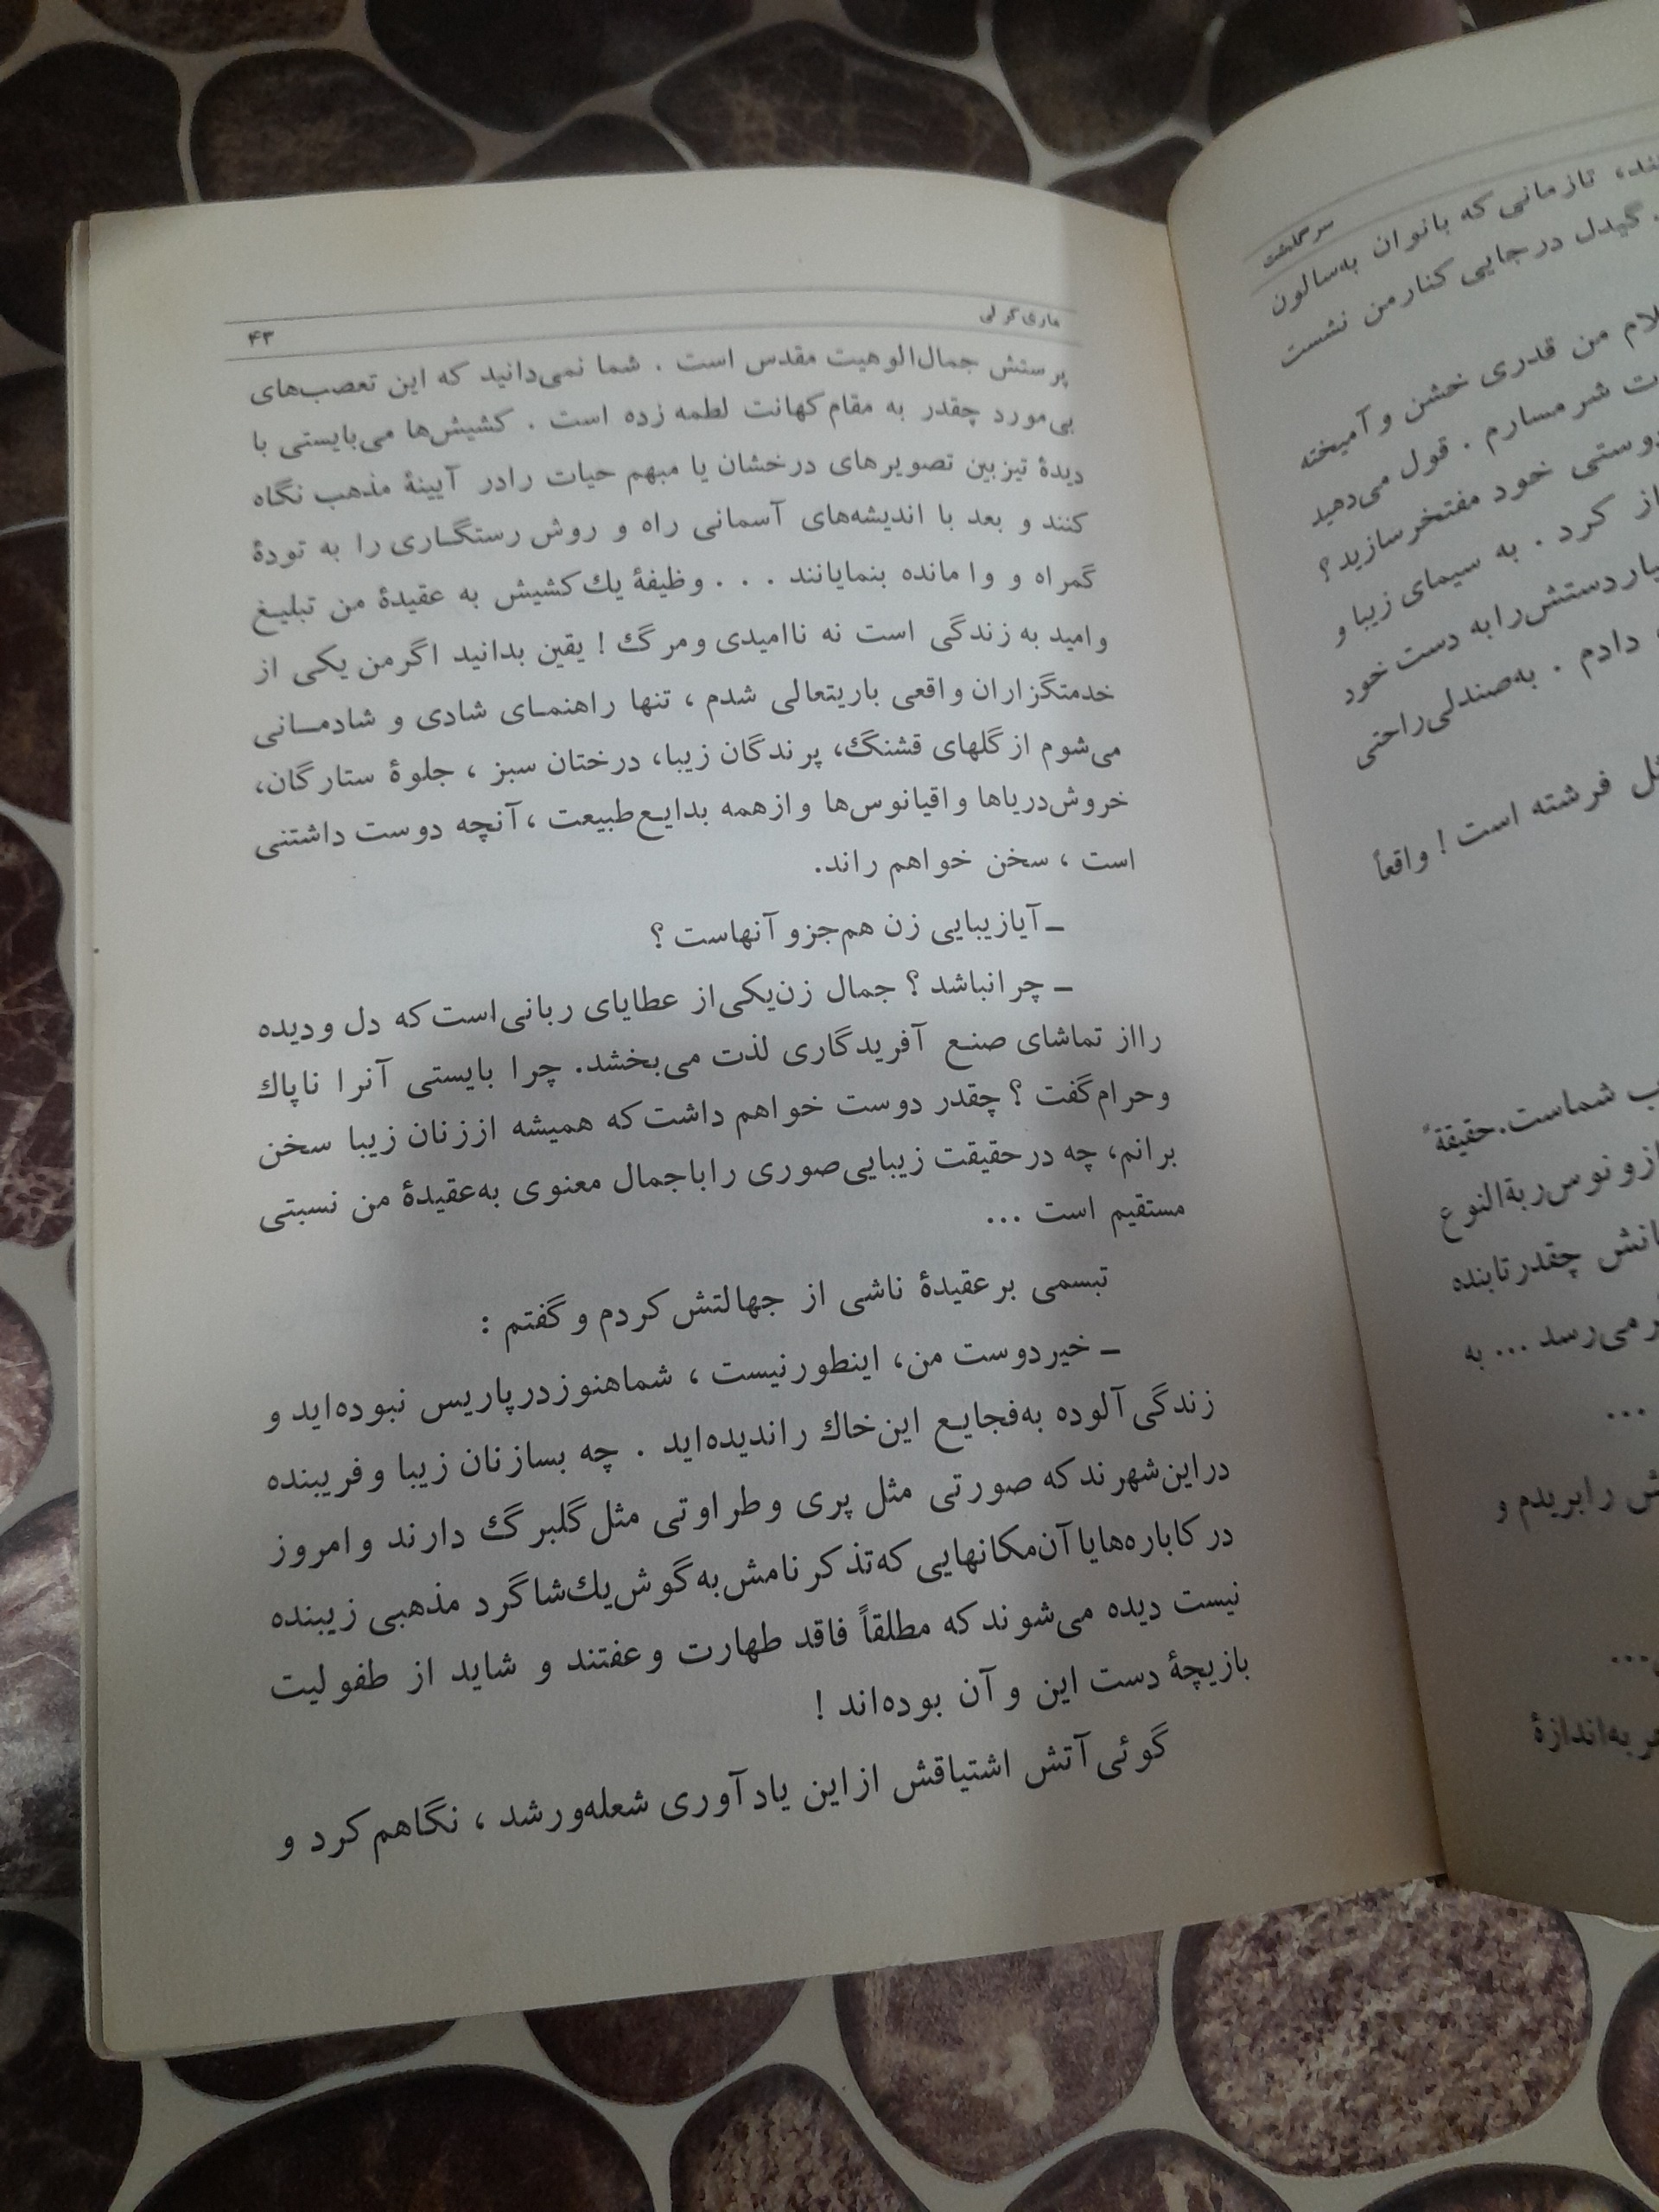 ماری کرلی ۴۳
پرستش جمال‌الوهیت مقدس است . شما نمی‌دانید که این تعصب‌های
بی‌مورد چقدر به مقام کهانت لطمه زده است . کشیش‌ها می‌بایستی با
دیدهٔ تیزبین تصویرهای درخشان یا مبهم حیات رادر آیینهٔ مذهب نگاه
کنند و بعد با اندیشه‌های آسمانی راه و روش رستگاری را به تودهٔ
گمراه و وامانده بنمایانند . . . وظیفهٔ یك کشیش به عقیدهٔ من تبلیغ
وامید به زندگی است نه ناامیدی ومرگ ! یقین بدانید اگرمن یکی از
خدمتگزاران واقعی باریتعالی شدم ، تنها راهنمای شادی و شادمانی
می‌شوم ازگلهای قشنگ، پرندگان زیبا، درختان سبز ، جلوهٔ ستارگان،
خروش‌دریاها واقیانوس‌ها وازهمه بدایع‌طبیعت ،آنچه دوست داشتنی
است ، سخن خواهم راند.
ـ آیازیبایی زن هم‌جزو آنهاست ؟
ـ چرانباشد ؟ جمال زن‌یکی‌از عطایای ربانی‌است‌که دل ودیده
رااز تماشای صنع آفریدگاری لذت می‌بخشد. چرا بایستی آنرا ناپاك
وحرام‌گفت ؟ چقدر دوست خواهم داشت‌که همیشه اززنان زیبا سخن
برانم، چه درحقیقت زیبایی‌صوری راباجمال معنوی به‌عقیدهٔ من نسبتی
مستقیم است ...
تبسمی برعقیدهٔ ناشی از جهالتش‌کردم وگفتم :
ـ خیردوست من، اینطورنیست ، شماهنوزدرپاریس نبوده‌اید و
زندگی‌آلوده به‌فجایع این‌خاك راندیده‌اید . چه بسازنان زیبا وفریبنده
دراین‌شهرندکه صورتی مثل پری وطراوتی مثل‌گلبرگ دارند وامروز
درکاباره‌هایاآن‌مکانهایی که‌تذکرنامش‌به‌گوش‌یك‌شاگرد مذهبی زیبنده
نیست دیده می‌شوندکه مطلقاً فاقد طهارت وعفتند و شاید از طفولیت
بازیچهٔ دست این وآن بوده‌اند !
گوئی‌آتش اشتیاقش ازاین یادآوری شعله‌ورشد ، نگاهم‌کرد و
سرگذشت
تازمانی‌که بانوان به‌سالون
گیدل درجایی کنارمن نشست
من قدری خشن وآمیخته
شرمسارم . قول می‌دهید
دوستی خود مفتخرسازید ؟
کرد . به سیمای زیبا و
دستش‌رابه دست‌خود
دادم . به‌صندلی‌راحتی
فرشته است ! واقعاً
شماست.حقیقةً
ازونوس‌ربةالنوع
چقدرتابنده
می‌رسد ... به
...
رابریدم و
...
به‌اندازهٔ